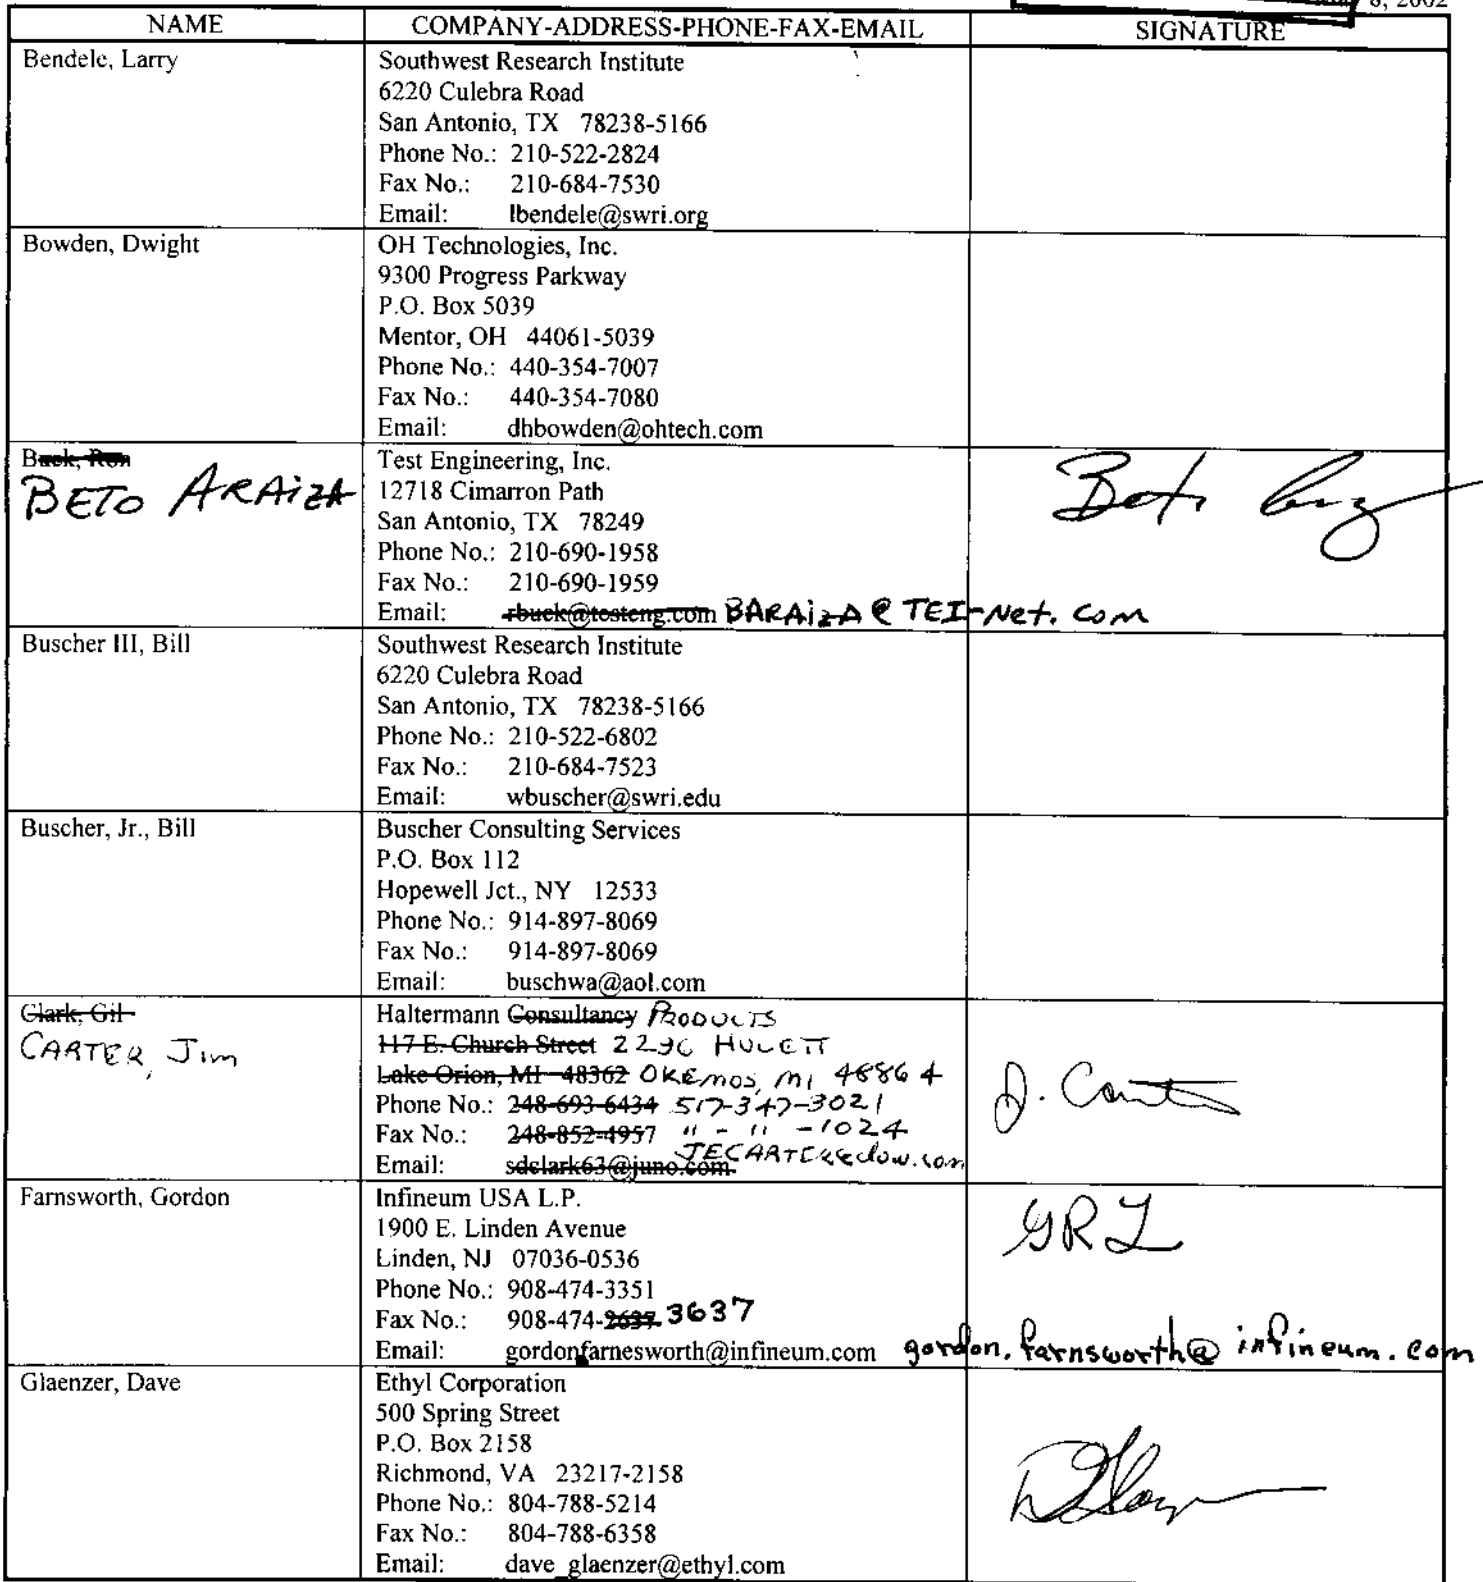 8, 2002
NAME COMPANY-ADDRESS-PHONE-FAX-EMAIL SIGNATURE
Bendele, Larry
Southwest Research Institute
6220 Culebra Road
San Antonio, TX 78238-5166
Phone No.: 210-522-2824
Fax No.: 210-684-7530
Email: lbendele@swri.org
Bowden, Dwight
OH Technologies, Inc.
9300 Progress Parkway
P.O. Box 5039
Mentor, OH 44061-5039
Phone No.: 440-354-7007
Fax No.: 440-354-7080
Email: dhbowden@ohtech.com
Buck, Ron
BETO ARAiZA
Test Engineering, Inc.
12718 Cimarron Path
San Antonio, TX 78249
Phone No.: 210-690-1958
Fax No.: 210-690-1959
Email: rbuck@testeng.com BARAiZA@TEI-Net.com
Buscher III, Bill
Southwest Research Institute
6220 Culebra Road
San Antonio, TX 78238-5166
Phone No.: 210-522-6802
Fax No.: 210-684-7523
Email: wbuscher@swri.edu
Buscher, Jr., Bill
Buscher Consulting Services
P.O. Box 112
Hopewell Jct., NY 12533
Phone No.: 914-897-8069
Fax No.: 914-897-8069
Email: buschwa@aol.com
Clark, Gil
CARTER, Jim
Haltermann Consultancy PRODUCTS
117 E. Church Street HULETT
Lake Orion, MI 48362 OKEmos, mi 48864
Phone No.: 248-693-6434 517-347-3021
Fax No.: 248-852-4957 " - " -1024
Email: sdclark63@juno.com JECARTER@dow.com
J. Cart
Farnsworth, Gordon
Infineum USA L.P.
1900 E. Linden Avenue
Linden, NJ 07036-0536
Phone No.: 908-474-3351
Fax No.: 908-474-2637 3637
Email: gordonfarnesworth@infineum.com gordon.farnsworth@infineum.com
Glaenzer, Dave
Ethyl Corporation
500 Spring Street
P.O. Box 2158
Richmond, VA 23217-2158
Phone No.: 804-788-5214
Fax No.: 804-788-6358
Email: dave_glaenzer@ethyl.com